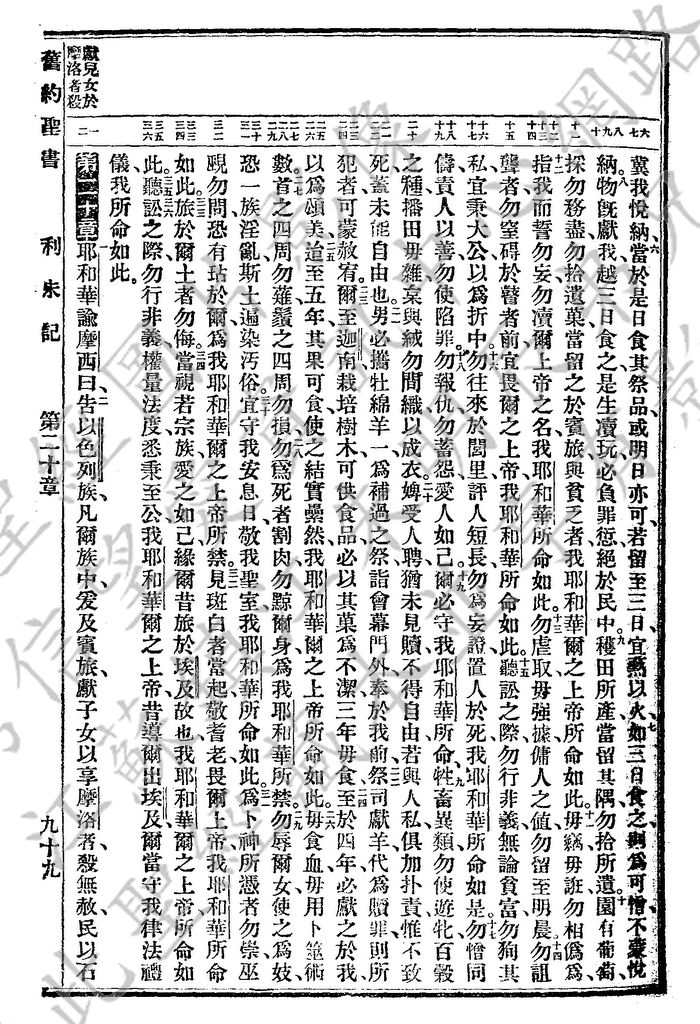 冀我悅納當於是日食其祭品或明日亦可若留至三日宜爇以火如三日食之則爲可憎不蒙悅
納物旣獻我越三日食之是生瀆玩必負罪愆絕於民中穫田所產當留其隅勿拾所遺園有葡萄
採勿務盡勿拾遺菓當留之於賓旅與貧乏者我耶和華爾之上帝所命如此毋竊毋誑勿相僞爲
指我而誓勿妄勿瀆爾上帝之名我耶和華所命如此勿虐取毋强據傭人之値勿留至明晨勿詛
聾者勿窒碍於瞽者前宜畏爾之上帝我耶和華所命如此聽訟之際勿行非義無論貧富勿狥其
私宜秉大公以爲折中勿往來於閭里評人短長勿爲妄證置人於死我耶和華所命如是勿憎同
儔責人以善勿使陷罪勿報仇勿蓄怨愛人如己爾必守我耶和華所命牲畜異類勿使遊牝百穀
之種播田毋雜枲與絨勿間織以成衣婢受人聘猶未見贖不得自由若與人私俱加扑責惟不致
死蓋未能自由也男必攜牡綿羊一爲補過之祭詣會幕門外奉於我前祭司獻羊代爲贖罪則所
犯者可蒙赦宥爾至迦南栽培樹木可供食品必以其菓爲不潔三年毋食至於四年必獻之於我
以爲頌美迨至五年其果可食使之結實纍然我耶和華爾之上帝所命如此毋食血毋用卜筮術
數首之四周勿薙鬚之四周勿損勿爲死者割肉勿黥爾身爲我耶和華所禁勿辱爾女使之爲妓
恐一族淫亂斯土遍染汚俗宜守我安息日敬我聖室我耶和華所命如此爲卜神所憑者勿崇巫
覡勿問恐有玷於爾爲我耶和華爾之上帝所禁見斑白者當起敬耆老畏爾上帝我耶和華所命
如此旅於爾土者勿侮當視若宗族愛之如己緣爾昔旅於埃及故也我耶和華爾之上帝所命如
此聽訟之際勿行非義權量法度悉秉至公我耶和華爾之上帝昔導爾出埃及爾當守我律法禮
儀我所命如此
第二十章耶和華諭摩西曰告以色列族凡爾族中爰及賓旅獻子女以享摩洛者殺無赦民以石
獻兒女於
摩洛者殺
舊約聖書 利未記 第二十章 九十九